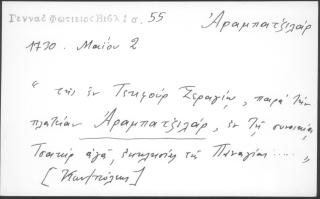 Γενναδ Φωτιειος Βιβλ 1 σ. 55 Ἀραμπατζιλάρ
1730. Μαίου 2
“ τῆς ἐν Τεκφούρ Σεραγίῳ, παρά τήν
πλατεῖαν Ἀραμπατζιλάρ, ἐν τῇ συνοικίᾳ
Τσακήρ ἀγᾶ, ἐκκλησίας τῆς Παναγίας .... „
[Κων/πόλεως]